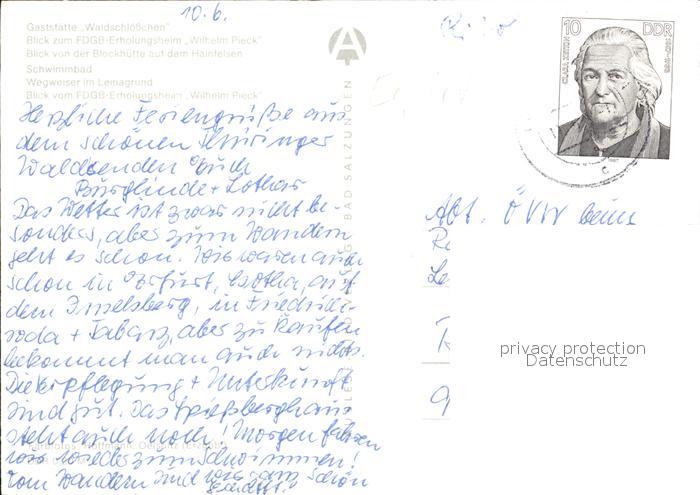 10.6.
Gaststätte „Waldschlößchen"
Blick zum FDGB-Erholungsheim „Wilhelm Pieck"
Blick von der Blockhütte auf dem Hainfelsen
Schwimmbad
Wegweiser im Leinagrund
Blick vom FDGB-Erholungsheim „Wilhelm Pieck"
Herzliche Feriengrüße aus
dem schönen Thüringer
Wald senden Euch
Burglinde + Lothar
Das Wetter ist zwar nicht be-
sonders, aber zum Wandern
geht es schon. Wir waren auch
schon in Erfurt, Gotha, auf
dem Inselsberg, in Friedrich-
roda + Tabarz, aber zu kaufen
bekommt man auch nichts.
Die Verpflegung + Unterkunft
sind gut. Das Spießberghaus
steht auch noch! Morgen fahren
wir wieder zum Schwimmen!
Vom Wandern sind wir ganz schön
geschafft.
BAD SALZUNGEN
10 DDR
CLARA ZETKIN
Abt. ÖVW beim
privacy protection
Datenschutz